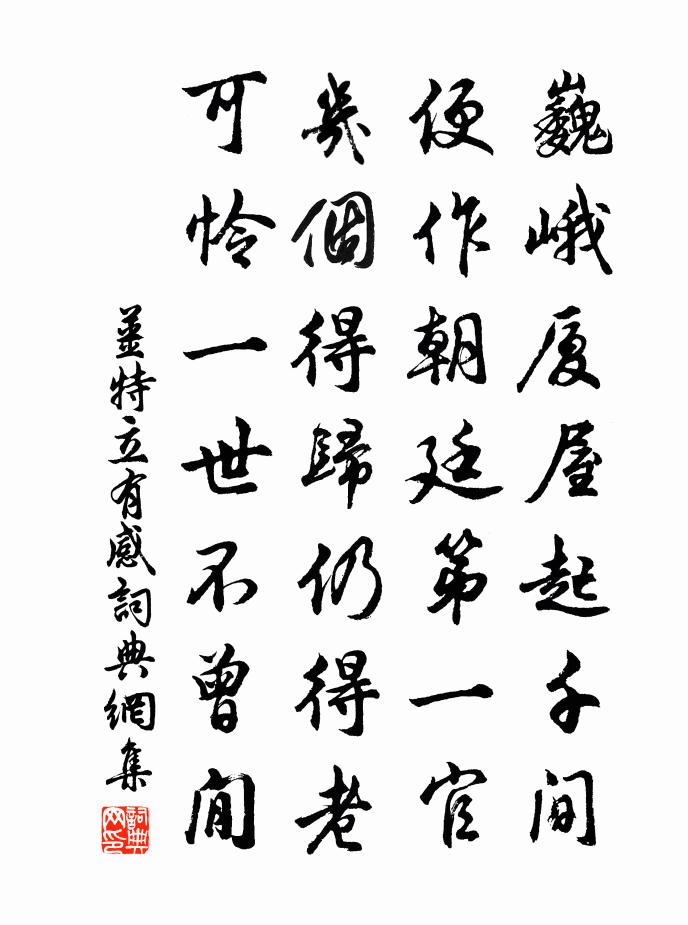 巍峨厦屋起千間
便作朝廷第一官
幾個得歸仍得老
可怜一世不曾閒
薑特立有感詞典網集
詞典网印